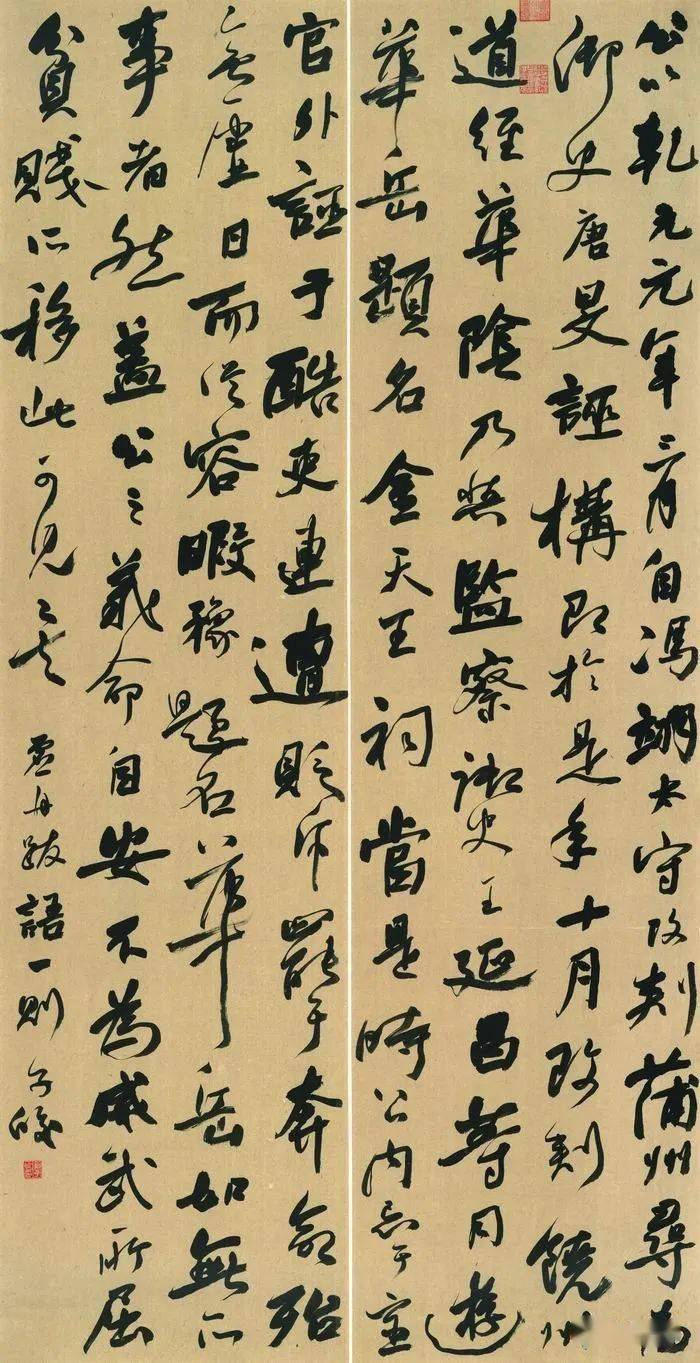 公以乾元元年三月自馮翊太守改刺蒲州尋為
御史唐旻誣構即於是年十月改刺饒州
道經華陰乃與監察御史王延昌等同遊
華岳題名金天王祠當是時公內忌于宰
官外誣于酷吏連遭貶斥罷于奔命殆
無虛日而從容暇豫題名華岳如無所
事者然蓋公之義命自安不為威武所屈
貧賤所移此可見矣 虛舟跋語一則